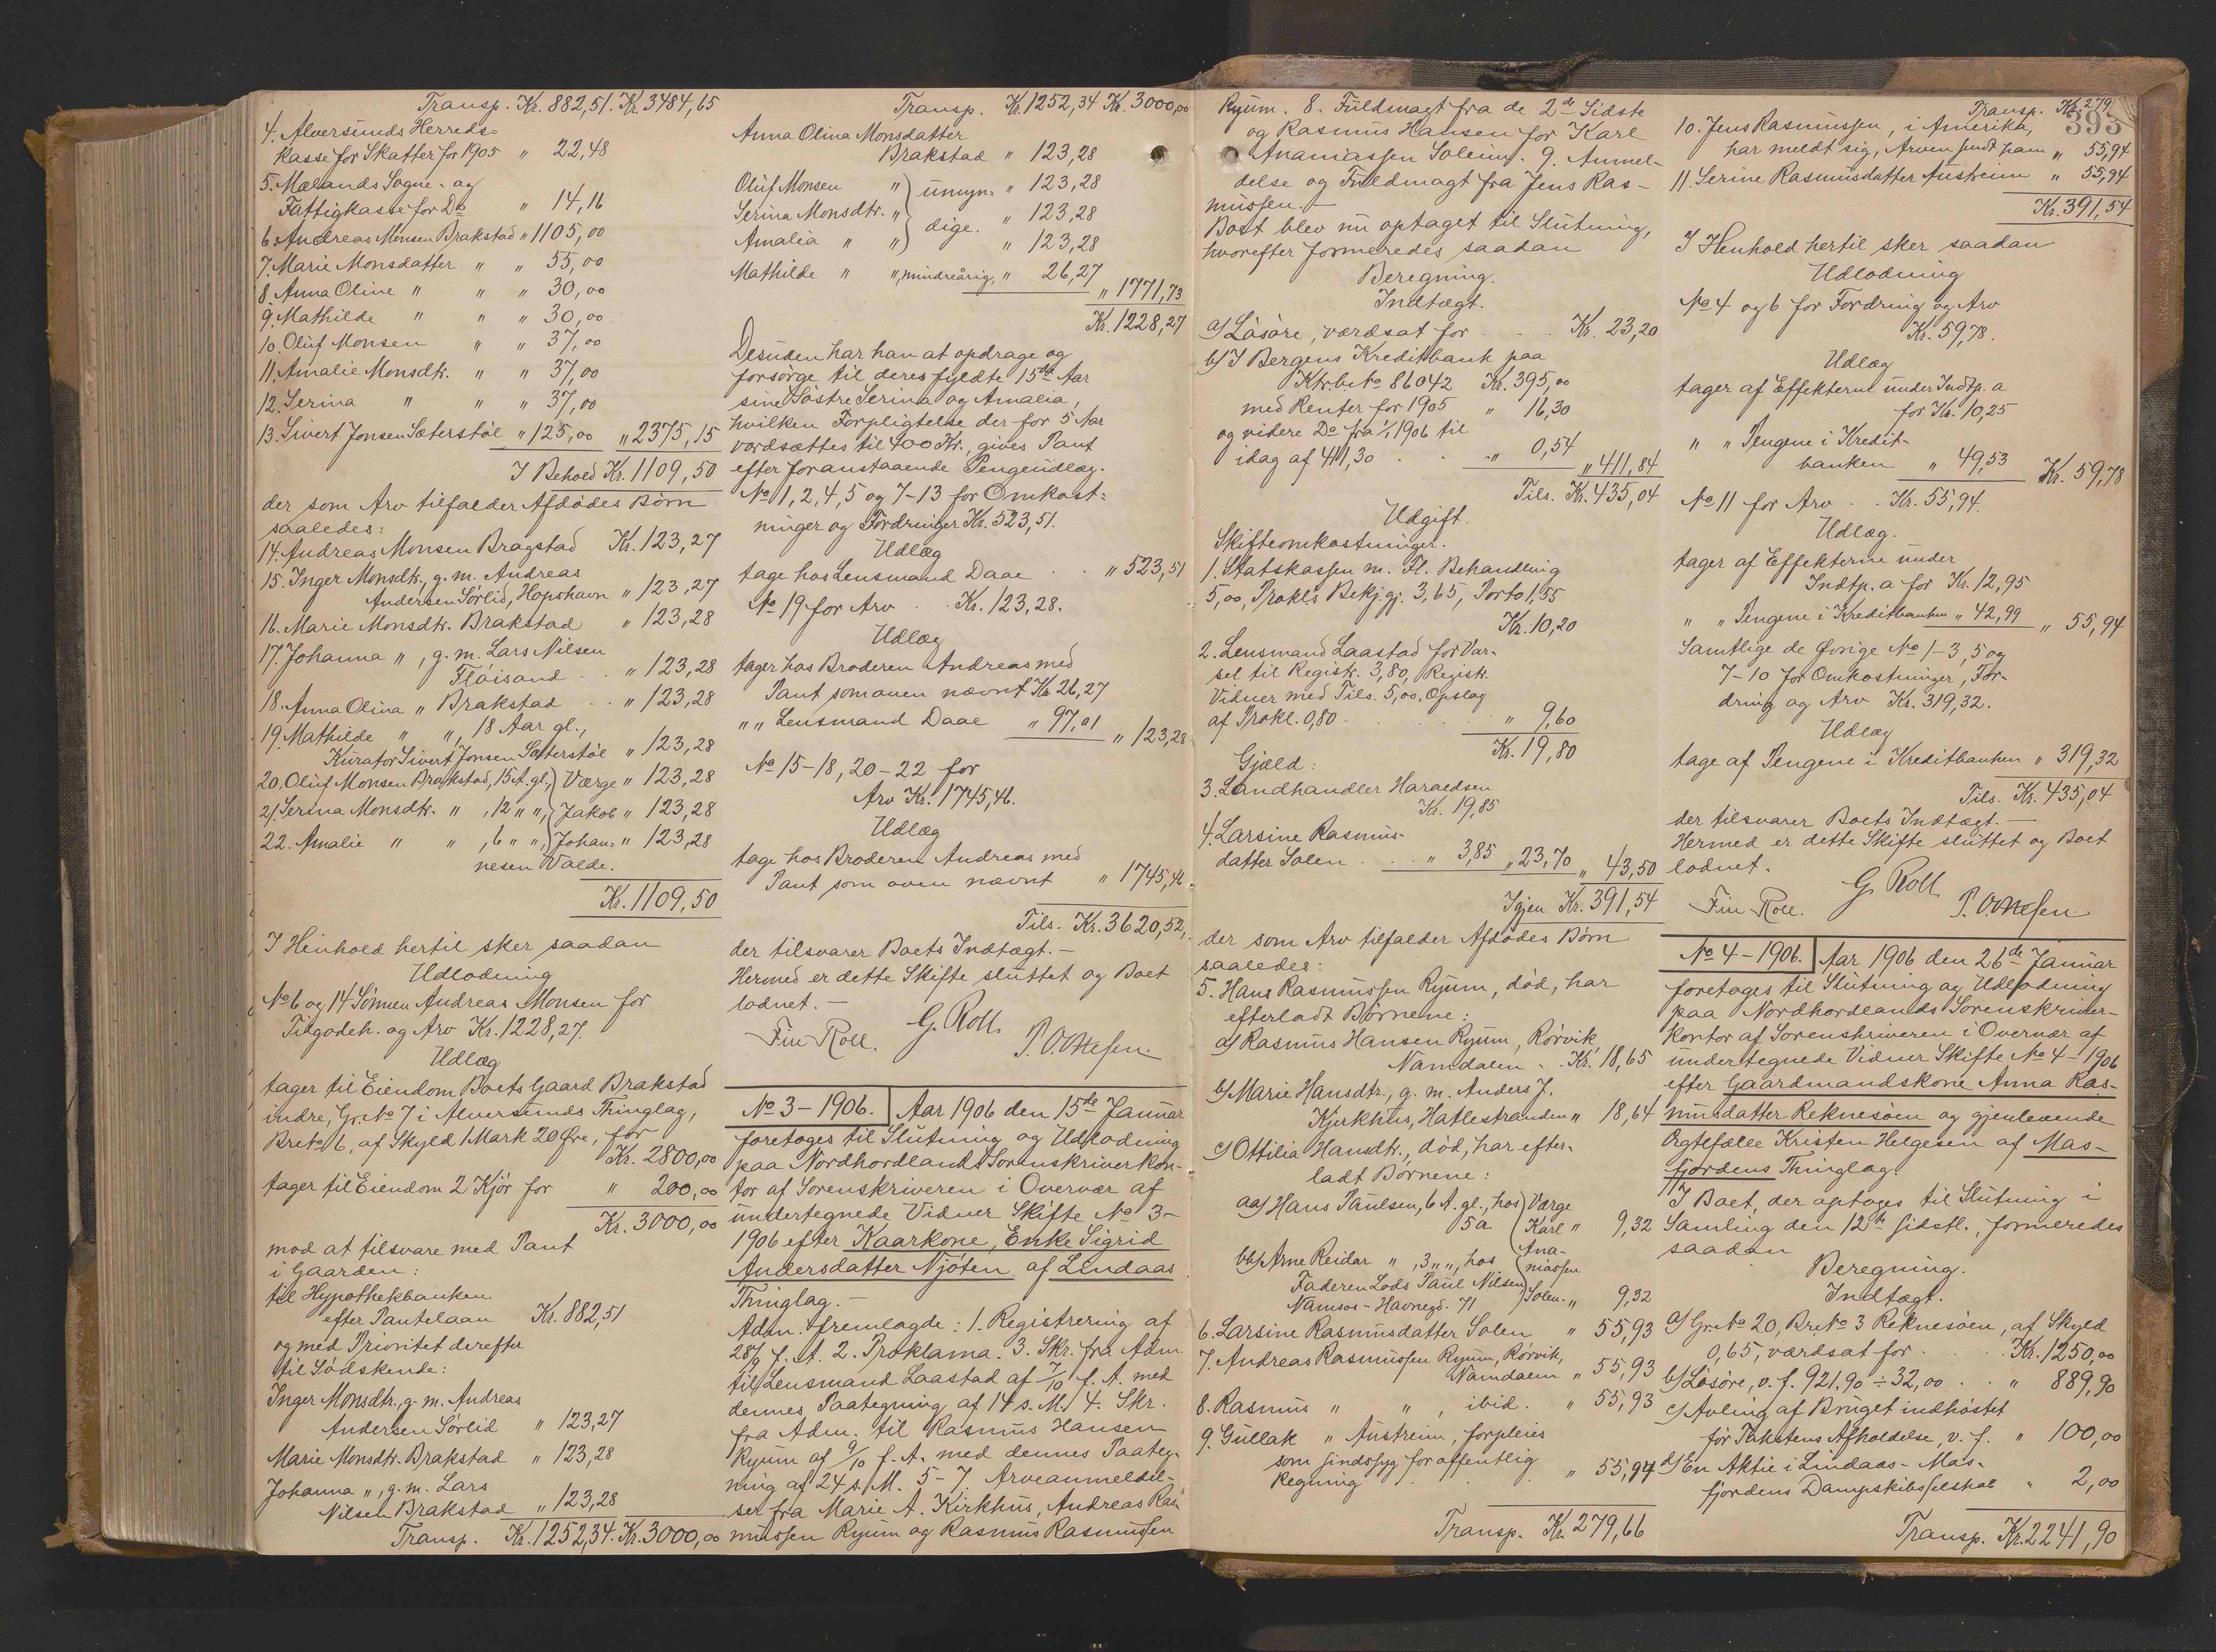 Transp. Kr. 882,51. Kr. 3484,65
4. Alversunds Herreds-
kasse for Skatter for 1905 " 22,48
5. Mælands Sogne- og
Fattigkasse for Do " 14,16
6. Andreas Monsen Brakstad " 1105,00
7. Marie Monsdatter " " 55,00
8. Anna Oline " " " 30,00
9. Mathilde " " " 30,00
10. Oluf Monsen " " 37,00
11. Amalie Monsdtr. " " 37,00
12. Serina " " " 37,00
13. Sivert Jonsen Sæterstøl " 125,00 " 2375,15
I Behold Kr. 1109,50
der som Arv tilfalder Afdødes Børn
saaledes:
14. Andreas Monsen Bragstad Kr. 123,27
15. Inger Monsdtr., g. m. Andreas
Andersen Sørlid, Hopshavn " 123,27
16. Marie Monsdtr. Brakstad " 123,28
17. Johanna " , g. m. Lars Nilsen
Fløisand . . " 123,28
18. Anna Olina " Brakstad . . " 123,28
19. Mathilde " " , 18 Aar gl.,
Kurator Sivert Jonsen Sæterstøl " 123,28
20. Oluf Monsen Brakstad, 15 A. gl., Værge " 123,28
21. Serina Monsdtr. " , 12 " ", Jakob " 123,28
22. Amalie " " , 6 " ", Johan- " 123,28
nesen Valde.
Kr. 1109,50
I Henhold hertil sker saadan
Udlodning
No 6 og 14 Sønnen Andreas Monsen for
Tilgodeh. og Arv Kr. 1228,27.
Udlæg
tager til Eiendom Boets Gaard Brakstad
indre, Gr. No 7 i Alversunds Thinglag,
Br. No 6, af Skyld 1 Mark 20 Øre, for
Kr. 2800,00
tager til Eiendom 2 Kjør for " 200,00
Kr. 3000,00
mod at tilsvare med Pant
i Gaarden:
til Hypothekbanken
efter Pantelaan Kr. 882,51
og med Prioritet derefter
til Sødskende:
Inger Monsdtr., g. m. Andreas
Andersen Sørlid " 123,27
Marie Monsdtr. Brakstad " 123,28
Johanna ", g. m. Lars
Nilsen Brakstad " 123,28
Transp. Kr. 1252,34. Kr. 3000,00
Transp. Kr. 1252,34 Kr. 3000,00
Anna Olina Monsdatter
Brakstad " 123,28
Oluf Monsen " umyn- " 123,28
Serina Monsdtr. " dige. " 123,28
Amalia " " " 123,28
Mathilde " ", mindreårig, " 26,27
" 1771,73
Kr. 1228,27
Desuden har han at opdrage og
forsørge til deres fyldte 15de Aar
sine Søstre Serina og Amalia,
hvilken Forpligtelse der for 5 Aar
værdsættes til 400 Kr., gives Pant
efter foranstaaende Pengeudlæg.
No 1, 2, 4, 5 og 7-13 for Omkost-
ninger og Fordringer Kr. 523,51.
Udlæg
tage hos Lensmand Daae . . " 523,51
No 19 for Arv . . Kr. 123,28.
Udlæg
tager hos Broderen Andreas med
Pant som oven nævnt Kr. 26,27
" " Lensmand Daae " 97,01 " 123,28
No 15-18, 20-22 for
Arv Kr. 1745,46.
Udlæg
tage hos Broderen Andreas med
Pant som oven nævnt " 1745,46
Tils. Kr. 3620,52,
der tilsvarer Boets Indtægt. —
Hermed er dette Skifte sluttet og Boet
lodnet. —
G. Roll.
Finn Roll.
No 3-1906. Aar 1906 den 15de Januar
foretoges til Slutning og Udlodning
paa Nordhordlands Sorenskriverkon-
tor af Sorenskriveren i Overvær af
undertegnede Vidner Skifte No 3-
1906 efter Kaarkone, Enke Sigrid
Andersdatter Njøten af Lindaas
Thinglag. —
Adm. fremlagde: 1. Registrering af
28/9 f. A. 2. Proklama. 3. Skr. fra Adm.
til Lensmand Laastad af 7/10 f. A. med
dennes Paategning af 14 s. M. 4. Skr.
fra Adm. til Rasmus Hansen
Ryum af 9/10 f. A. med dennes Paateg-
ning af 24 s. M. 5-7. Arveanmeldel-
ser fra Marie A. Kirkhus, Andreas Ras-
mussen Ryum og Rasmus Rasmussen
Ryum. 8. Fuldmagt fra de 2de Sidste
og Rasmus Hansen for Karl
Ananiassen Solem. 9. Anmel-
delse og Fuldmagt fra Jens Ras-
mussen. —
Boet blev nu optaget til Slutning,
hvorefter formeredes saadan
Beregning.
Indtægt.
a) Løsøre, værdsat for . . . Kr. 23,20
b) I Bergens Kreditbank paa
Ktr. b. No 86042 Kr. 395,00
med Renter for 1905 " 16,30
og videre Do fra 1/1 1906 til
idag af 411,30 . . . " 0,54
" 411,84
Tils. Kr. 435,04
Udgift.
Skifteomkostninger.
1. Statskassen m. Fl. Behandling
5,00, Prokls Bekj.gj. 3,65, Porto 1,55
Kr. 10,20
2. Lensmand Laastad for Var-
sel til Registr. 3,80, Registr.
Vidner med Tils. 5,00, Opslag
af Prokl. 0,80 . . . " 9,60
Kr. 19,80
Gjæld:
3. Landhandler Haraldsen
Kr. 19,85
4. Larsine Rasmus-
datter Solen . . . " 3,85 " 23,70 " 43,50
Igjen Kr. 391,54
der som Arv tilfalder Afdødes Børn
saaledes:
5. Hans Rasmussen Ryum, død, har
efterladt Børnene:
a) Rasmus Hansen Ryum, Rørvik,
Namdalen . . Kr. 18,65
b) Marie Hansdtr., g. m. Anders J.
Kjerkhus, Hatlestranden " 18,64
c) Ottilia Hansdtr., død, har efter-
ladt Børnene:
aa) Hans Paulsen, 6 A. gl., hos Værge
5a Karl " 9,32
Ana-
bb) Arne Reidar " , 3 " ", hos niassen
Faderen Lods Paul Nilsen, Solen. "
Namsos-Havnegd. 71 9,32
6. Larsine Rasmusdatter Solen " 55,93
7. Andreas Rasmussen Ryum, Rørvik,
Namdalen " 55,93
8. Rasmus " " , ibid. " 55,93
9. Gullak " Austreim, forpleies
som sindssyg for offentlig
Regning . . " 55,94
Transp. Kr. 279,66
393
Transp. Kr. 279
10. Jens Rasmussen, i Amerika,
har meldt sig, Arven sendt ham " 55,94
11. Serine Rasmusdatter Austreim " 55,94
Kr. 391,54
I Henhold hertil sker saadan
Udlodning
No 4 og 6 for Fordring og Arv
Kr. 59,78.
Udlæg
tager af Effekterne under Indtp. a
for Kr. 10,25
" " Pengene i Kredit-
banken " 49,53 Kr. 59,78
No 11 for Arv . . Kr. 55,94.
Udlæg.
tager af Effekterne under
Indtp. a for Kr. 12,95
" " Pengene i Kreditbanken " 42,99 " 55,94
Samtlige de Øvrige No 1-3, 5 og
7-10 for Omkostninger, For-
dring og Arv Kr. 319,32.
Udlæg
tage af Pengene i Kreditbanken " 319,32
Tils. Kr. 435,04
der tilsvarer Boets Indtægt. —
Hermed er dette Skifte sluttet og Boet
lodnet.
G. Roll.
Finn Roll.
No 4-1906. Aar 1906 den 26de Januar
foretoges til Slutning og Udlodning
paa Nordhordlands Sorenskriver-
kontor af Sorenskriveren i Overvær af
undertegnede Vidner Skifte No 4-1906
efter Gaardmandskone Anna Ras-
musdatter Reknesøen og gjenlevende
Ægtefælle Kristen Helgesen af Mas-
fjordens Thinglag.
I Boet, der optoges til Slutning i
Samling den 12te sidstl., formeredes
saadan
Beregning.
Indtægt.
a) Gr. No 20, Br. No 3 Reknesøen, af Skyld
0,65, værdsat for . . . Kr. 1250,00
b) Løsøre, v. f. 921,90 ÷ 32,00 . . " 889,90
c) Avling af Bruget indhøstet
før Takstens Afholdelse, v. f. " 100,00
d) En Aktie i Lindaas-Mas-
fjordens Dampskibsselskab " 2,00
Transp. Kr. 2241,90